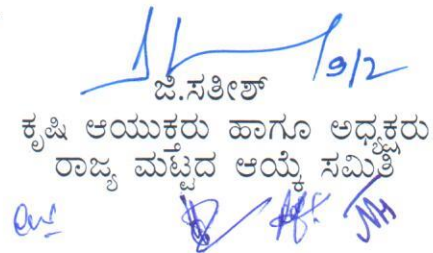 9/2
ಜಿ.ಸತೀಶ್
ಕೃಷಿ ಆಯುಕ್ತರು ಹಾಗೂ ಅಧ್ಯಕ್ಷರು
ರಾಜ್ಯ ಮಟ್ಟದ ಆಯ್ಕೆ ಸಮಿತಿ